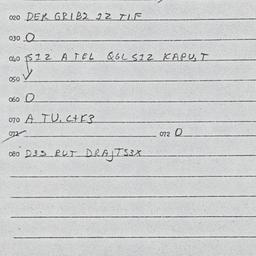 020 DER GRIB2 22 TIF
030 O
040 SIZ A TEL QGL SIZ KAPU.T
050
060 O
070 A TU. C+F3
072 072 O
080 D33 RUT DRAJTS3X